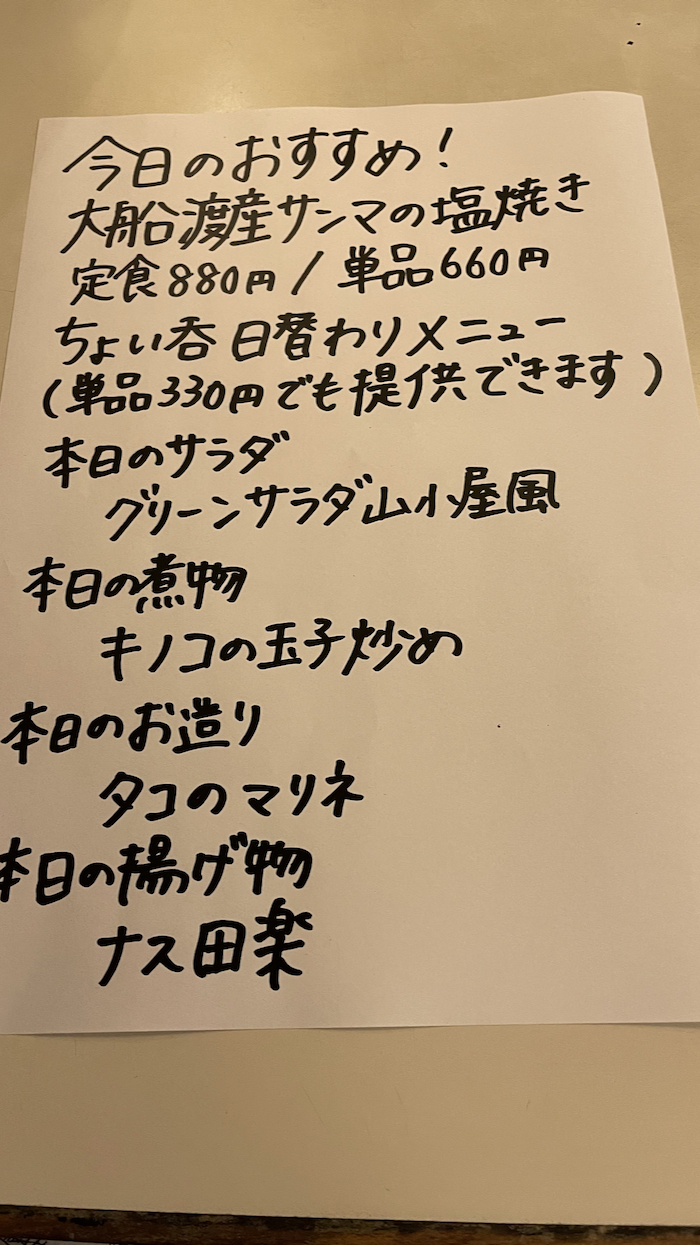 今日のおすすめ!
大船渡産サンマの塩焼き
定食880円/単品660円
ちょい呑日替わりメニュー
(単品330円でも提供できます)
本日のサラダ
グリーンサラダ山小屋風
本日の煮物
キノコの玉子炒め
本日のお造り
タコのマリネ
本日の揚げ物
ナス田楽